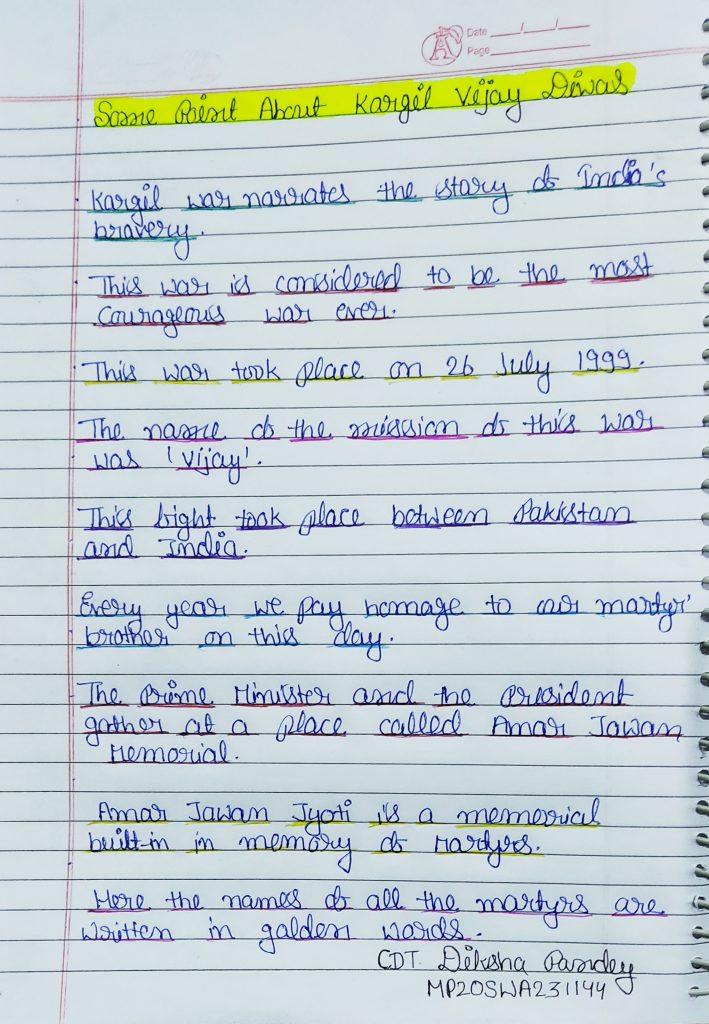 Date
Page
Some Point About Kargil Vijay Diwas
Kargil war narrates the story of India's
bravery.
This war is considered to be the most
courageous war ever.
This war took place on 26 July 1999.
The name of the mission of this war
was 'Vijay'.
This fight took place between Pakistan
and India.
Every year we pay homage to our martyr'
brother on this day.
The Prime Minister and the President
gather at a place called Amar Jawan
Memorial.
Amar Jawan Jyoti is a memorial
built-in in memory of Martyrs.
Here the names of all the martyrs are
written in golden words.
CDT. Diksha Pandey
MP20SWA231144